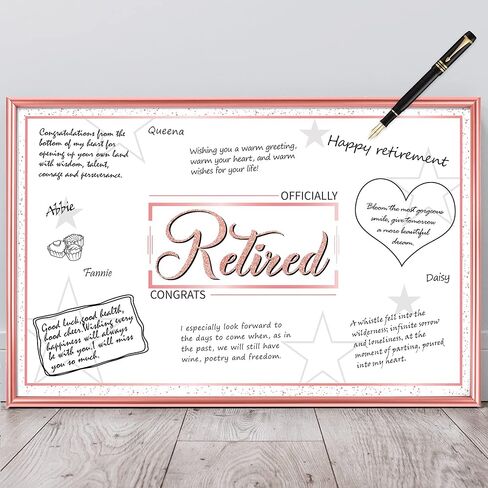 Congratulations from the
bottom of my heart for
opening up your own land
with wisdom, talent,
courage and perseverance.
Queena
Wishing you a warm greeting,
warm your heart, and warm
wishes for your life!
Happy retirement
Abbie
Bloom the most gorgeous
smile, give tomorrow
a more beautiful
dream.
OFFICIALLY
Retired
CONGRATS
Fannie
Daisy
Good luck,good health,
hood cheer.Wishing every
happiness will always
be with you.I will miss
you so much.
I especially look forward to
the days to come when, as in
the past, we will still have
wine, poetry and freedom.
A whistle fell into the
wilderness; infinite sorrow
and loneliness, at the
moment of parting, poured
into my heart.